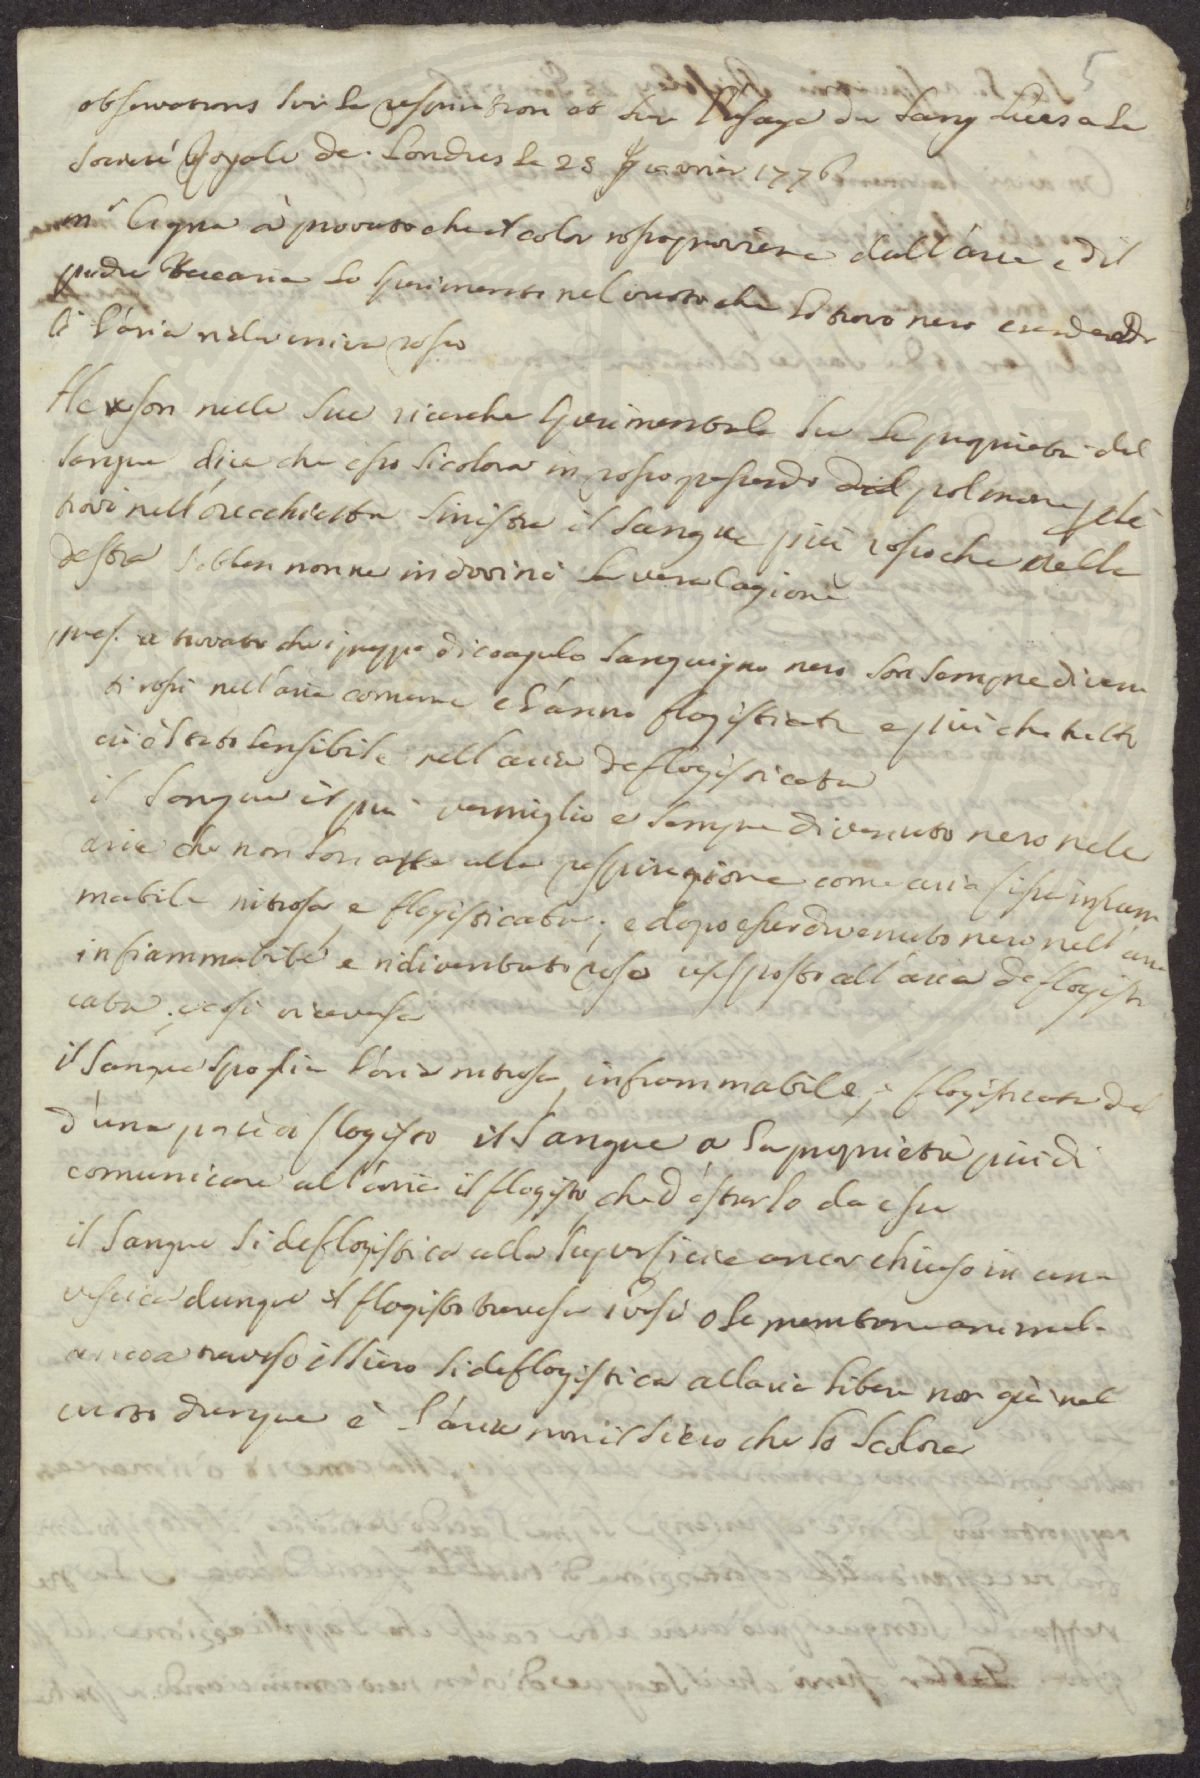 5
observations sur la respiration et sur l'usage du sang lues a la
societé Royale de Londres le 25 janvier 1776
m.r Cigna à provato che il color rosso proviene dall'aria e dil
padre Beccaria lo sperimentò nel vuoto che lo trovò nero e rendendo
li l'aria rosso
Hewson nelle sue ricerche sperimentale su le proprietà del
sangue dice che esso si colora in rosso passando dal polmone
trovi nell'orecchietta sinistra il sangue più rosso che nella
destra sebben non ne indovinò la vera cagione
a trovato che i pezzi di coagulo sanguigno nero son sempre diven
ti rossi nell'aria comune e l'anno flogisticata e più che tutto
ciò è stato sensibile nell'aria deflogisticata
il sangue il più vermiglio e sempre divenuto nero nele
arie che non son atte alla respirazione come aria fissa infiam
mabile nitrosa e flogisticata; e dopo esser divenuto nero nell'aria
infiammabile e ridiventato roso esposto all'aria deflogisti
cata; e così viceversa
il sangue spoglia l'aria nitrosa, infiammabile, e flogisticata del
d'una parte di flogisto il sangue a la proprietà più di
comunicare all'aria il flogisto, che d'estrarlo da essa
il sangue si deflogistica alla superficie ancor chiuso in una
vescica dunque il flogisto traversa i vasi o le membrane animali
ancora traverso il siero si deflogistica all'aria libera non già nel
vuoto dunque è l'aria non il siero che lo scolora